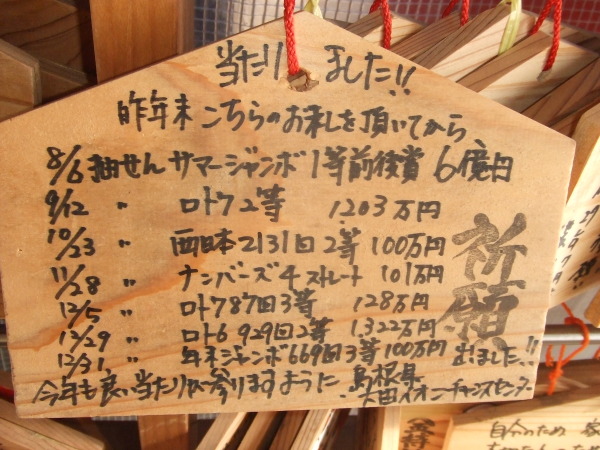 当たりました!!
昨年末こちらのお札を頂いてから
8/6 抽せん サマージャンボ1等前後賞 6億円
9/12 〃 ロト7 2等 1203万円
10/23 〃 西日本2131回2等 100万円
11/28 〃 ナンバーズ4ストレート 101万円
12/5 〃 ロト7 87回3等 128万円
12/29 〃 ロト6 929回2等 1,322万円
12/31 〃 年末ジャンボ669回3等100万円 出ました!!
今年も良い当たりが参りますように 島根県
大田イオンチャンスセンター
祈願
自分のため